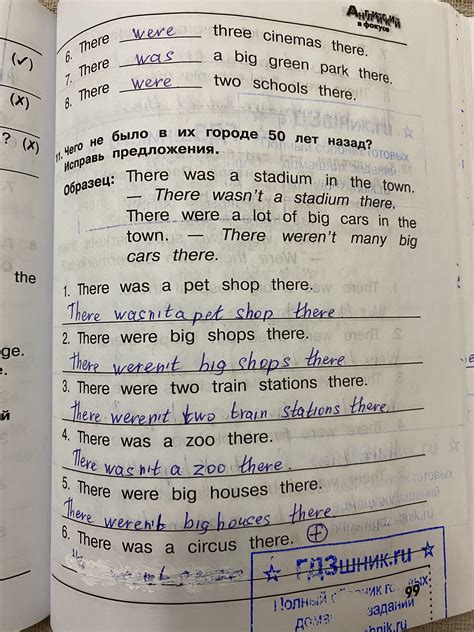 Английский
в фокусе
(✓)
6. There were three cinemas there.
(X)
7. There was a big green park there.
8. There were two schools there.
? (X)
11. Чего не было в их городе 50 лет назад?
Исправь предложения.
Образец: There was a stadium in the town.
— There wasn't a stadium there.
There were a lot of big cars in the
town. — There weren't many big
cars there.
the
1. There was a pet shop there.
There wasn't a pet shop there
2. There were big shops there.
There weren't big shops there
ge.
3. There were two train stations there.
There weren't two train stations there
ий
4. There was a zoo there.
There wasn't a zoo there.
5. There were big houses there.
There weren't big houses there
6. There was a circus there. +
ГДЗшник.ru
99
Полный